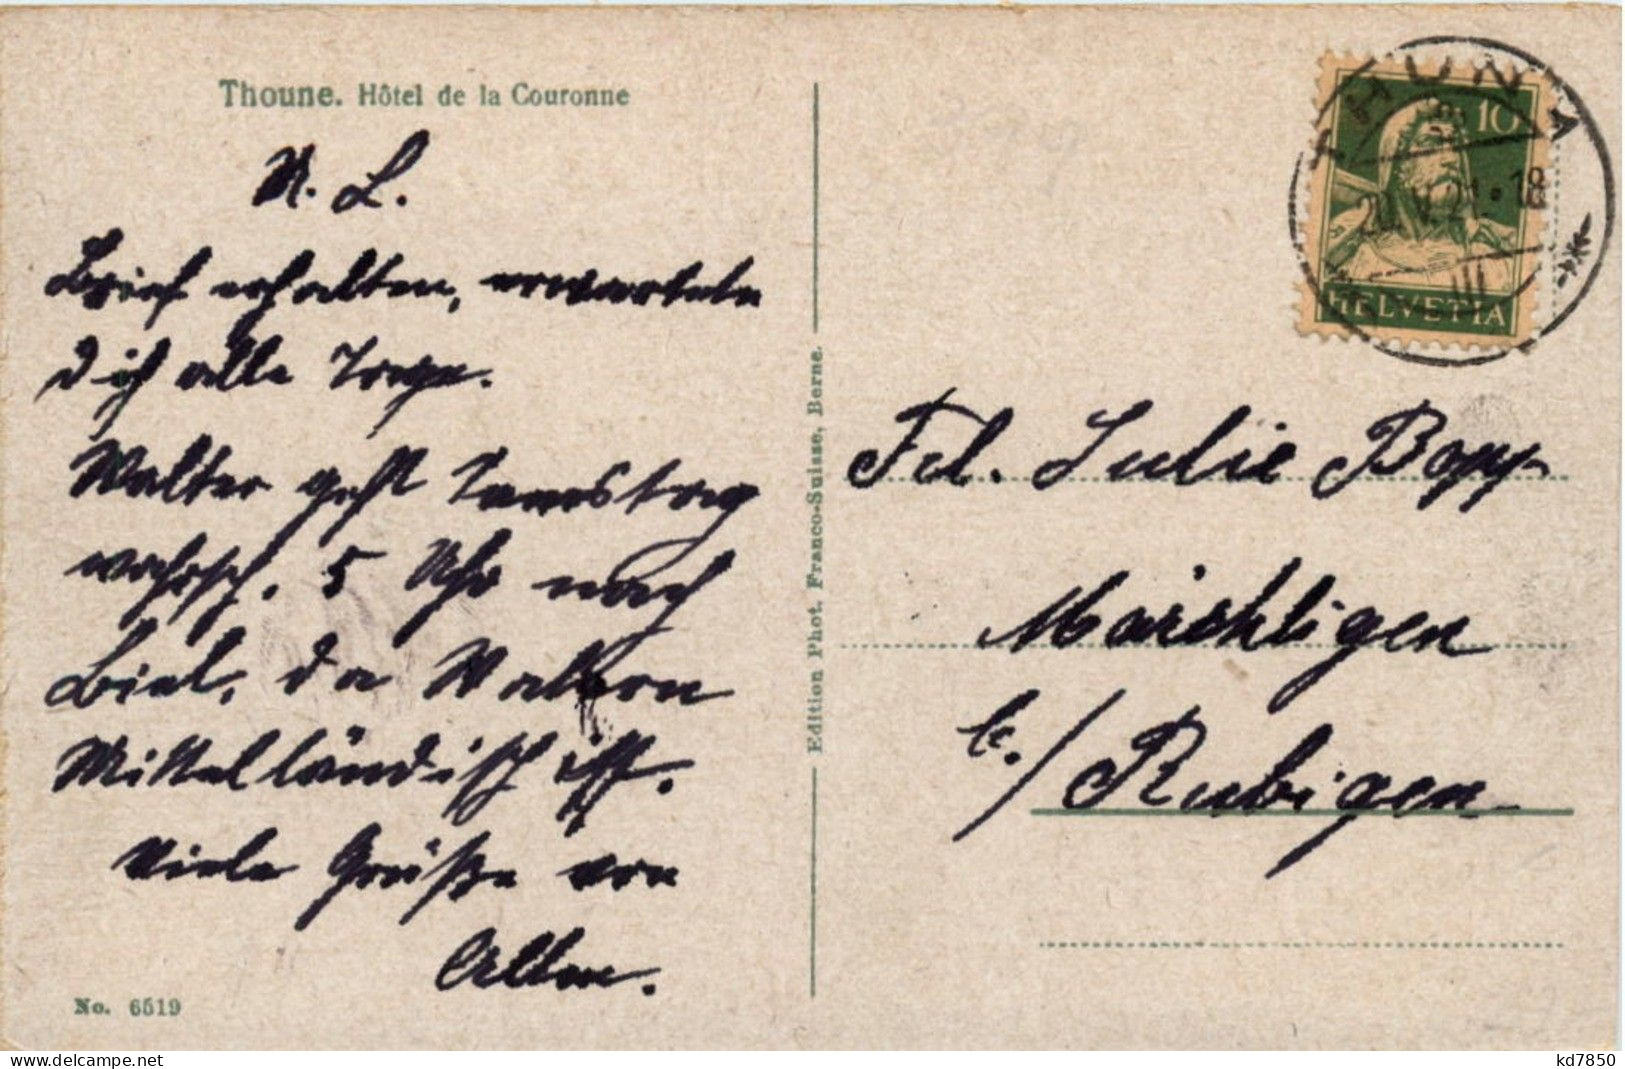 Thoune. Hôtel de la Couronne
M. L.
Brief erhalten, erwartete
dich alle Tage.
Walter geht Samstag
wahrsch. 5 Uhr nach
Biel, da
Mittelländisch ist.
Viele Grüße von
No. 6519
Edition Phot. Franco-Suisse, Berne.
THUN
20.V.21·18
III
10
HELVETIA
Frl. Julie Bopp
Märchligen
b./Rubigen
kd7850